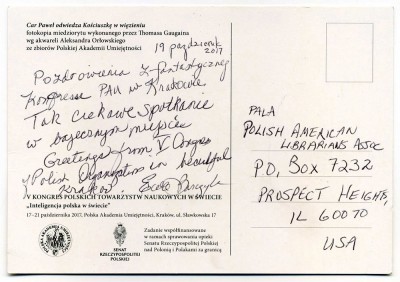 Car Paweł odwiedza Kościuszkę w więzieniu
fotokopia miedziorytu wykonanego przez Thomasa Gaugaina
wg akwareli Aleksandra Orłowskiego
ze zbiorów Polskiej Akademii Umiejętności
19 październik
2017
Pozdrowienia z fantastycznej
Kongresu PAU w Krakowie
Tak ciekawe spotkanie
w bajecznym miejscu
Greetings from V Congres
of Polish Organizations in beautiful
Krakow.
V KONGRES POLSKICH TOWARZYSTW NAUKOWYCH W ŚWIECIE
„Inteligencja polska w świecie”
17-21 października 2017, Polska Akademia Umiejętności, Kraków, ul. Sławkowska 17
SENAT
RZECZYPOSPOLITEJ
POLSKIEJ
Zadanie współfinansowane
w ramach sprawowania opieki
Senatu Rzeczypospolitej Polskiej
nad Polonią i Polakami za granicą
PALA
POLISH AMERICAN
LIBRARIANS ASSOC
PO, BOX 7232
PROSPECT HEIGHTS,
IL 60070
USA